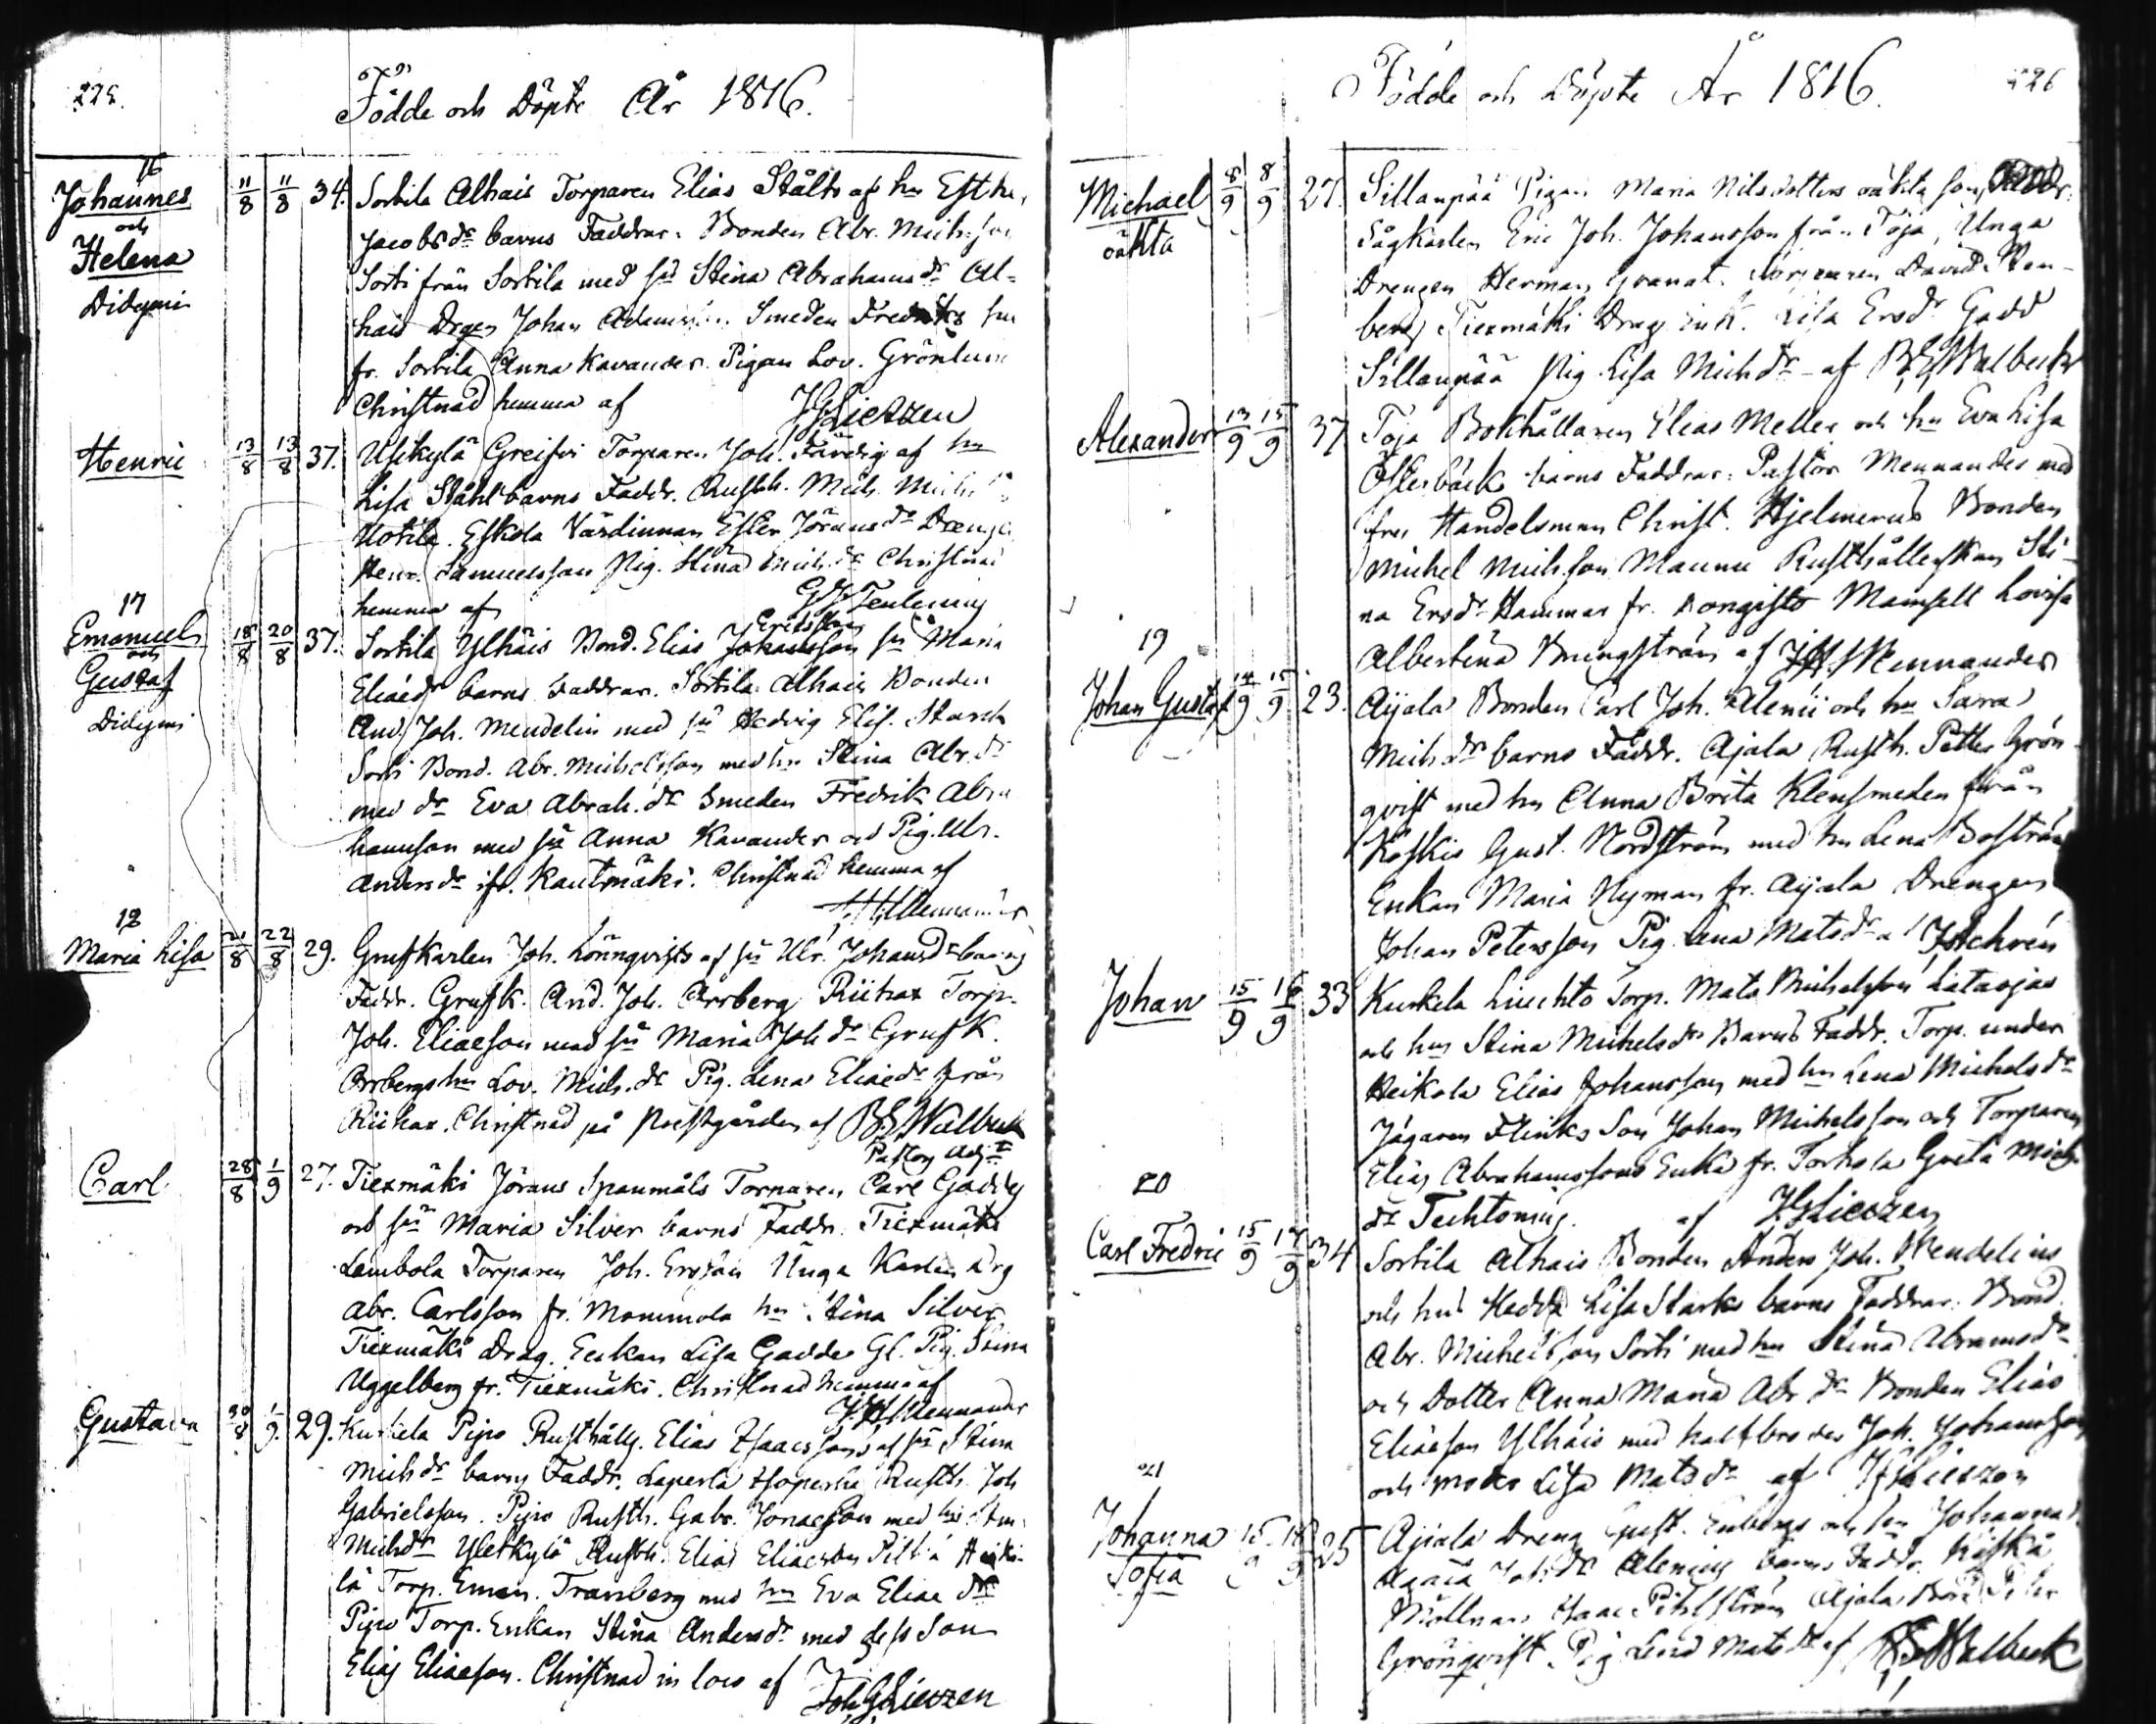 225.
Födde och Döpte År 1816.
16
Johannes
och
Helena
Didymi
11/8 11/8 34. Sorbila Alhais Torparen Elias Stålts af hu Esther
Jacobsdr barns Faddrar. Bonden Abr. Mich:son
Sorti från Sorbila med hu Stina Abrahamsdr Al-
hais Drgen Johan Adamss: Smeden Fredriks hu
fr. Sorbila Anna Kavander. Pigan Lov. Grönlund
Christnad hemma af JGLiewzen
Henric 13/8 13/8 37. Uskylä Greifvi Torparen Joh. Färdig af hu
Lisa Ståhl barns Faddr. Rusth. Mich. Mich:
Uotila. Eskola Värdinnan Ester Jöransdr Drengen
Henr. Samuelsson Pig. Stina Mich.dr Christnad
hemma af GJTenlening
17
Emanuel
och
Gustaf
Didymi
18/8 20/8 37. Sorbila Ylhäis Bond. Elias Johansson Ericsson hu Maria
Eliaedr barns Faddrar. Sorbila Alhais Bonden
And. Joh. Mendelin med hu Hedvig Elis. Starck
Sorti Bond. Abr. Michelsson med hu Stina Abr.dr
med dr Eva Abrah.dr Smeden Fredrik Abra
hamson med hu Anna Kavander och Pig. Ulr.
Andersdr ifr. Kautmäki. Christnad hemma af
JHMennander
18
Maria Lisa 21/8 22/8 29. Grufkarlen Joh. Lönnqvists af hu Ulr. Johansdr barns
Faddr. Grufk. And. Joh. Arrberg Riihax Torp.
Joh. Eliaeson med hu Maria Joh.dr Grufk.
Arrbergs hu Lov. Mich.dr Pig. Lena Eliaedr från
Riihax. Christnad på Prestgården af BEWalbeck
Pastor Adj:
Carl 28/8 1/9 27. Tiexmäki Jörans Spanmåls Tornaren Carl Gadds
och hu Maria Silver barns Faddr. Tiexmäki
Lambola Torparen Joh. Ersson Unga Karlen Drg
Abr. Carlsson fr. Mommola hu Stina Silver
Tiexmäki Drag. Enkan Lisa Gadde Gl. Pig. Stina
Uggelberg fr. Tiexmäki. Christnad hemma af
JHMennander
Gustava 30/8 1/9 29. Kurkela Pijro Rusthålls. Elias Isaacssons af hu Stina
Michdr barns Faddr. Laperla Rusth. Joh
Gabrielsson. Pijro Rusth. Gabr. Jonaeson med hu
Michdr Yletkylä Rusth. Elias Eliaeson Heiki-
lä Torp. Eman. Tranberg med hu Eva Eliae dr
Pijro Torp. Enkan Stina Andersdr med dess Son
Elias Eliaeson. Christnad in loco af Joh GLiewzen
226
Födde och Döpte År 1816.
Michael
oäkta
8/9 8/9 27. Sillanpää Pigan Maria Nilsdotters oäkta son, Faddr.
Sågkarlen Eric Joh. Johansson från Töja, Unga
Drengen Herman Granat. Torparen David Sten-
berg Tiexmäki Drag. enk. Lisa Ersdr Gadd
Sillanpää Pig. Lisa Michdr af BEWalbeck
Alexander 13/9 15/9 37 Töja Bokhållaren Elias Meller och hu Eva Lisa
Österbäck barns Faddrar: Pastor Mennander med
fru Handelsman Christ. Hjelmerus Bonden
Michel Michson Maunu Rusthållerskan Sti-
na Ersdr Hammar fr. Kongisto Mamsell Lovisa
Albertina Bringström af JHMennander
19
Johan Gustaf 14/9 15/9 23. Aijala Bonden Carl Joh. Alenii och hu Sara
Michdr barns Faddr. Ajala Rusth. Petter Grön-
qvist med hu Anna Brita Klensmeden från
Koskis Gust. Nordström med hu Lena Boström
Enkan Maria Nyman fr. Aijala Drengen
Johan Petersson Pig. Lena Matsdr af JAchrén
Johan 15/9 16/9 33 Kurkela Liuchto Torp. Mats Michelsson Lataojas
och hu Stina Michelsdr Barns Faddr. Torp. under
Heikola Elias Johansson med hu Lena Michelsdr
Jägaren Flinks Son Johan Michelsson och Torparen
Elias Abrahamssons Enka fr. Torkola Greta Mich
dr Techtoming. af JGLiewzen
20
Carl Fredric 15/9 17/9 34 Sorbila Alhais Bonden Anders Joh. Mendelins
och hu Hedda Lisa Starks barns Faddrar: Bond.
Abr. Michelsson Sorti med hu Stina Abramsdr
och Dotter Anna Maria Abr.dr Bonden Elias
Eliaeson Ylhäis med halfbroder Joh. Johansson
och moder Lisa Matsdr af JGLiewzen
21
Johanna
Sofia
15/9 18/9 25 Ajiala Dreng Gust. Enbergs och hu Johanna
Agata Joh.dr Alenius barns Faddr. Koski
Möllnar Isaac Pihlström Aijala Bond Peter
Grönqvist. Pig Lena Matsdr af BEWalbeck